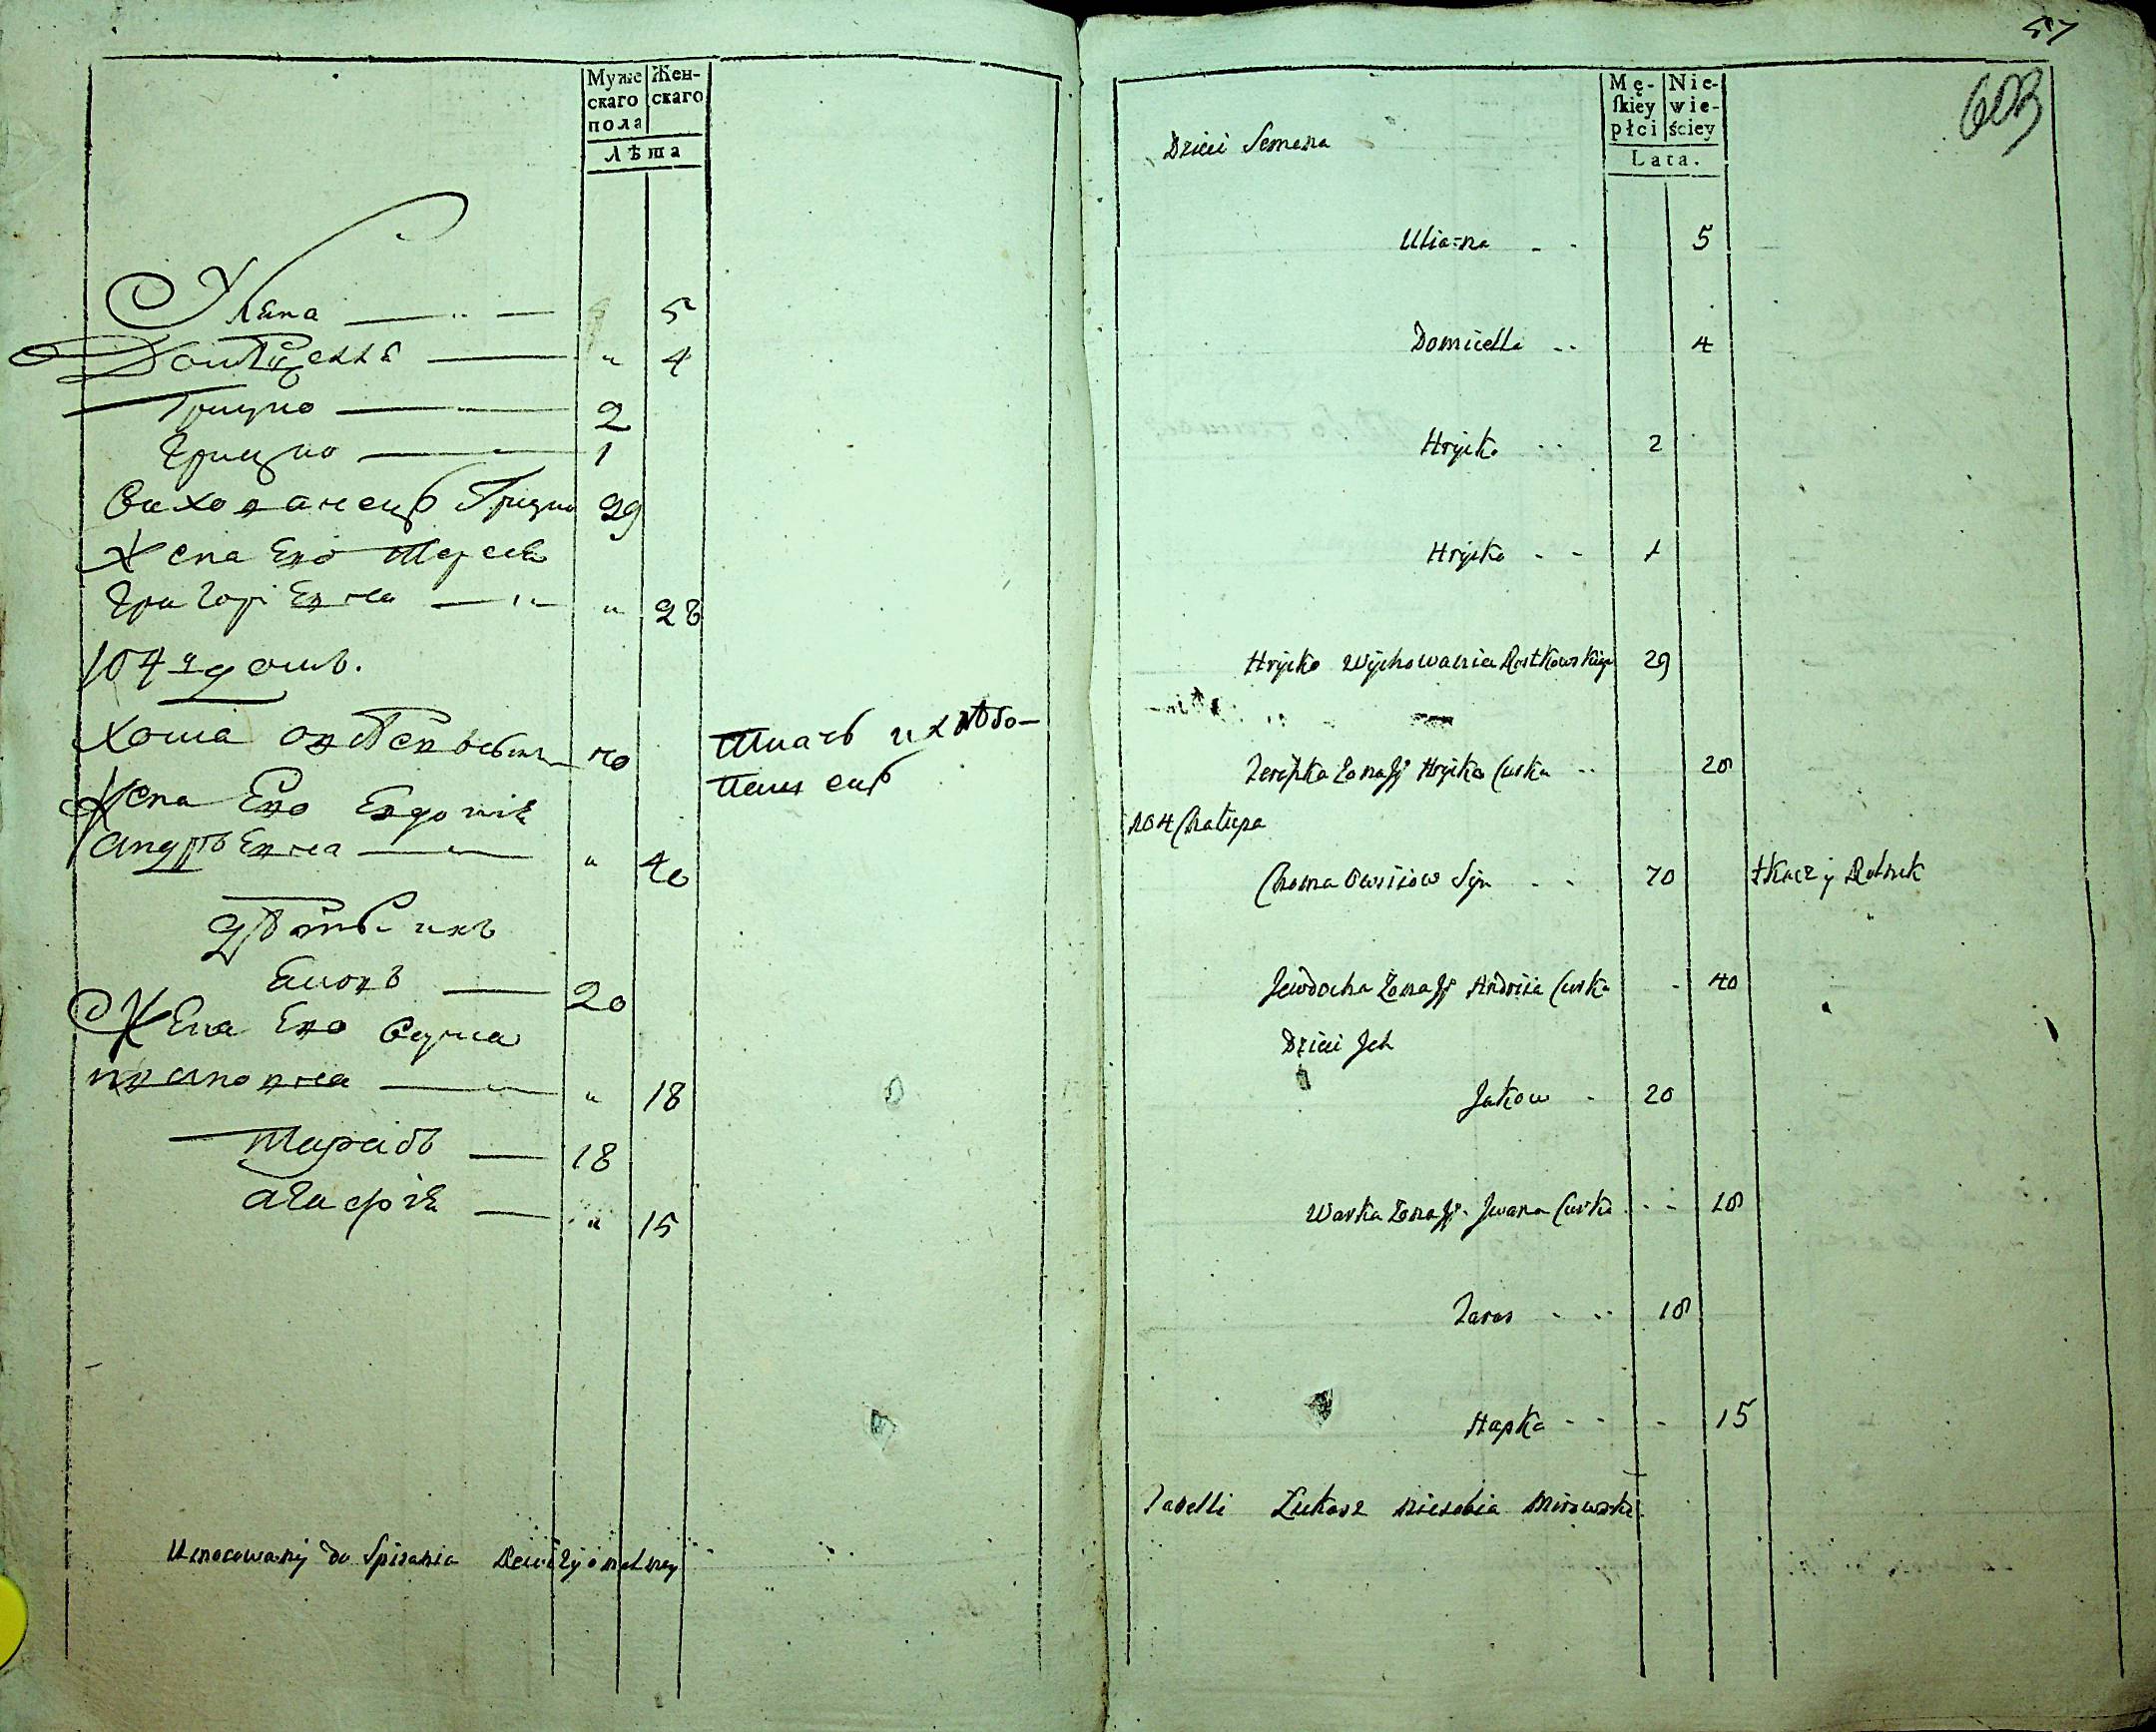 Муже Жен-
скаго скаго
пола
Лѣта
Уляна 5
Домѣцелля " 4
Грицко 2
Грицко 1
Вихованецъ Грицко 29
Жена Его
Григоріевна " 28
104й домъ.
Хома 70 Ткачъ и хлѣбо-
пашецъ
Жена Его Евдокія
Андрѣевна " 40
Дѣти ихъ
Яковъ 20
Жена Его Варка
Ивановна " 18
Тарасъ 18
Агафія " 15
Umocowany do Spisania Rewizyonalney
57
603
Mę- Nie-
skiey wie-
płci ściey
Lata.
Dzieci Semena
Ulia=na 5
Domicella 4
Hrycko 2
Hrycko 1
Hrycko Wychowania 29
Żona Jj Hrycka Curka 28
104 Chałupa
Choma Owsiiow Syn 70 tkacz y Rolnik
Jewdocha Żona Jj Andrija Curka 40
Dzieci Jch
Jakow 20
Warka Żona Jj Jwana Curka 18
Taras 18
Hapka 15
Tabelli Łukasz